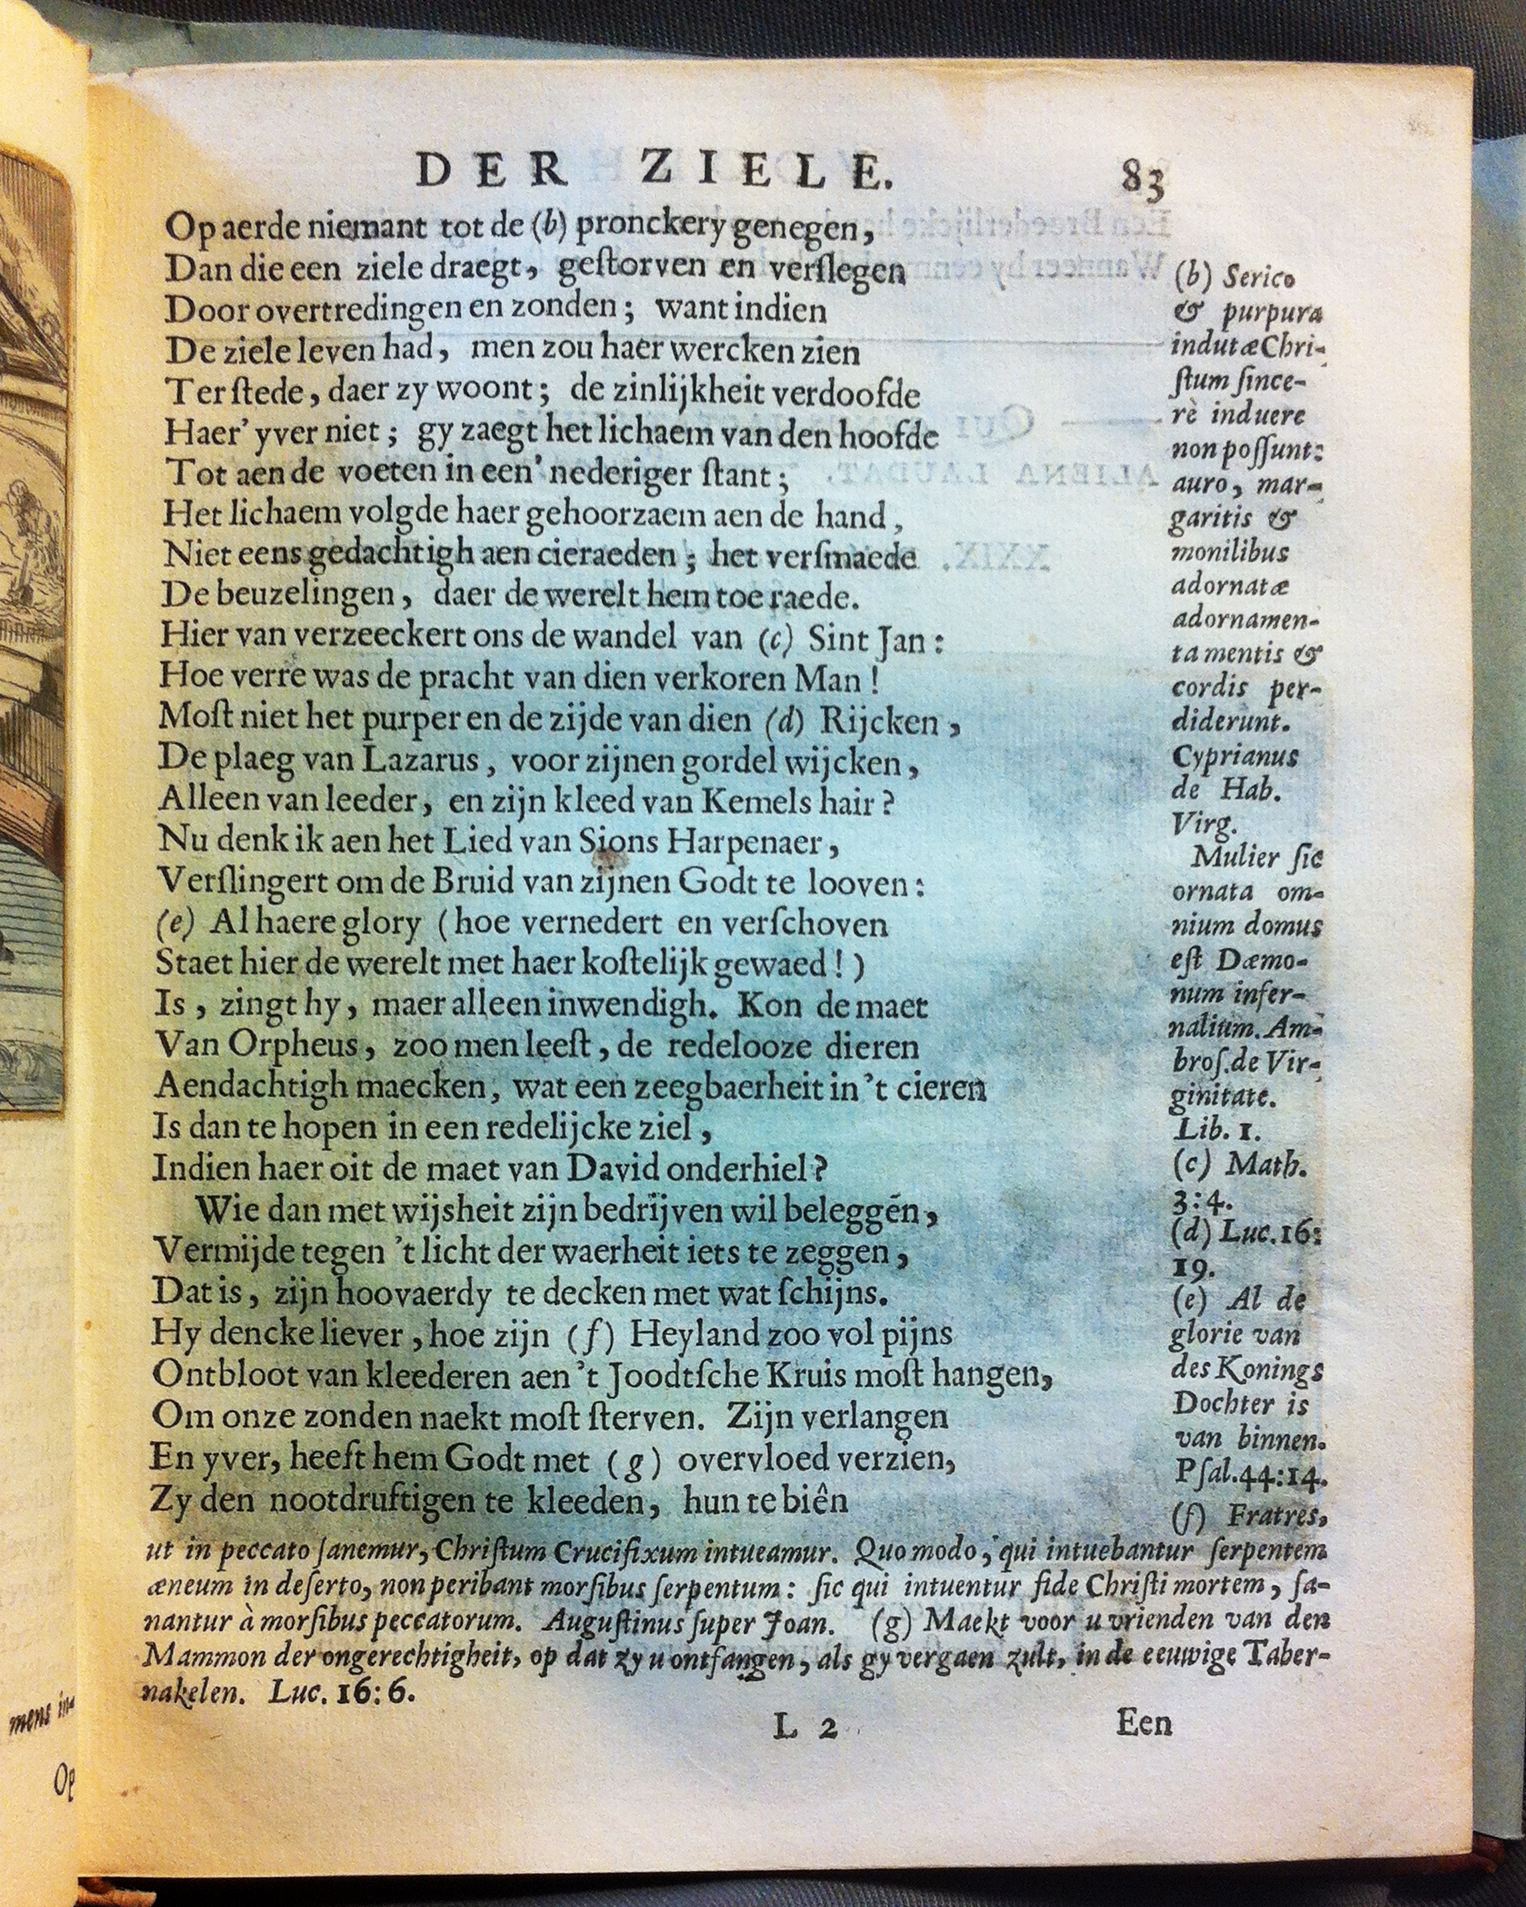 DER ZIELE. 83
Op aerde niemant tot de (b) pronckery genegen,
Dan die een ziele draegt, geſtorven en verſlegen
Door overtredingen en zonden; want indien
De ziele leven had, men zou haer wercken zien
Ter ſtede, daer zy woont; de zinlijkheit verdoofde
Haer' yver niet; gy zaegt het lichaem van den hoofde
Tot aen de voeten in een' nederiger ſtant;
Het lichaem volgde haer gehoorzaem aen de hand,
Niet eens gedachtigh aen cieraeden; het verſmaede
De beuzelingen, daer de werelt hem toe raede.
Hier van verzeeckert ons de wandel van (c) Sint Jan:
Hoe verre was de pracht van dien verkoren Man!
Moſt niet het purper en de zijde van dien (d) Rijcken,
De plaeg van Lazarus, voor zijnen gordel wijcken,
Alleen van leeder, en zijn kleed van Kemels hair?
Nu denk ik aen het Lied van Sions Harpenaer,
Verſlingert om de Bruid van zijnen Godt te looven:
(e) Al haere glory (hoe vernedert en verſchoven
Staet hier de werelt met haer koſtelijk gewaed!)
Is, zingt hy, maer alleen inwendigh. Kon de maet
Van Orpheus, zoo men leeſt, de redelooze dieren
Aendachtigh maecken, wat een zeegbaerheit in 't cieren
Is dan te hopen in een redelijcke ziel,
Indien haer oit de maet van David onderhiel?
Wie dan met wijsheit zijn bedrijven wil beleggén,
Vermijde tegen 't licht der waerheit iets te zeggen,
Dat is, zijn hoovaerdy te decken met wat ſchijns.
Hy dencke liever, hoe zijn (f) Heyland zoo vol pijns
Ontbloot van kleederen aen 't Joodtſche Kruis moſt hangen,
Om onze zonden naekt moſt ſterven. Zijn verlangen
En yver, heeft hem Godt met (g) overvloed verzien,
Zy den nootdruftigen te kleeden, hun te biên
(b) Serico
& purpura
indutæ Chri-
ſtum ſince-
rè induere
non poſſunt:
auro, mar-
garitis &
monilibus
adornatæ
adornamen-
ta mentis &
cordis per-
diderunt.
Cyprianus
de Hab.
Virg.
Mulier ſic
ornata om-
nium domus
eſt Dæmo-
num infer-
nalium. Am-
broſ. de Vir-
ginitate.
Lib. 1.
(c) Math.
3:4.
(d) Luc. 16:
19.
(e) Al de
glorie van
des Konings
Dochter is
van binnen.
Pſal. 44:14.
(f) Fratres,
ut in peccato ſanemur, Chriſtum Crucifixum intueamur. Quo modo, qui intuebantur ſerpentem
æneum in deſerto, non peribant morſibus ſerpentum: ſic qui intuentur fide Chriſti mortem, ſa-
nantur à morſibus peccatorum. Auguſtinus ſuper Joan. (g) Maekt voor u vrienden van den
Mammon der ongerechtigheit, op dat zy u ontfangen, als gy vergaen zult, in de eeuwige Taber-
nakelen. Luc. 16:6.
L 2 Een
mens in-
Op